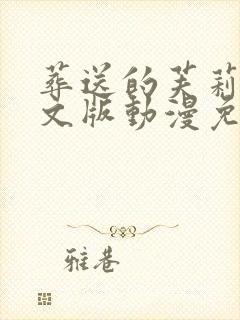 葬送的芙莉
文版動漫免
雅巷